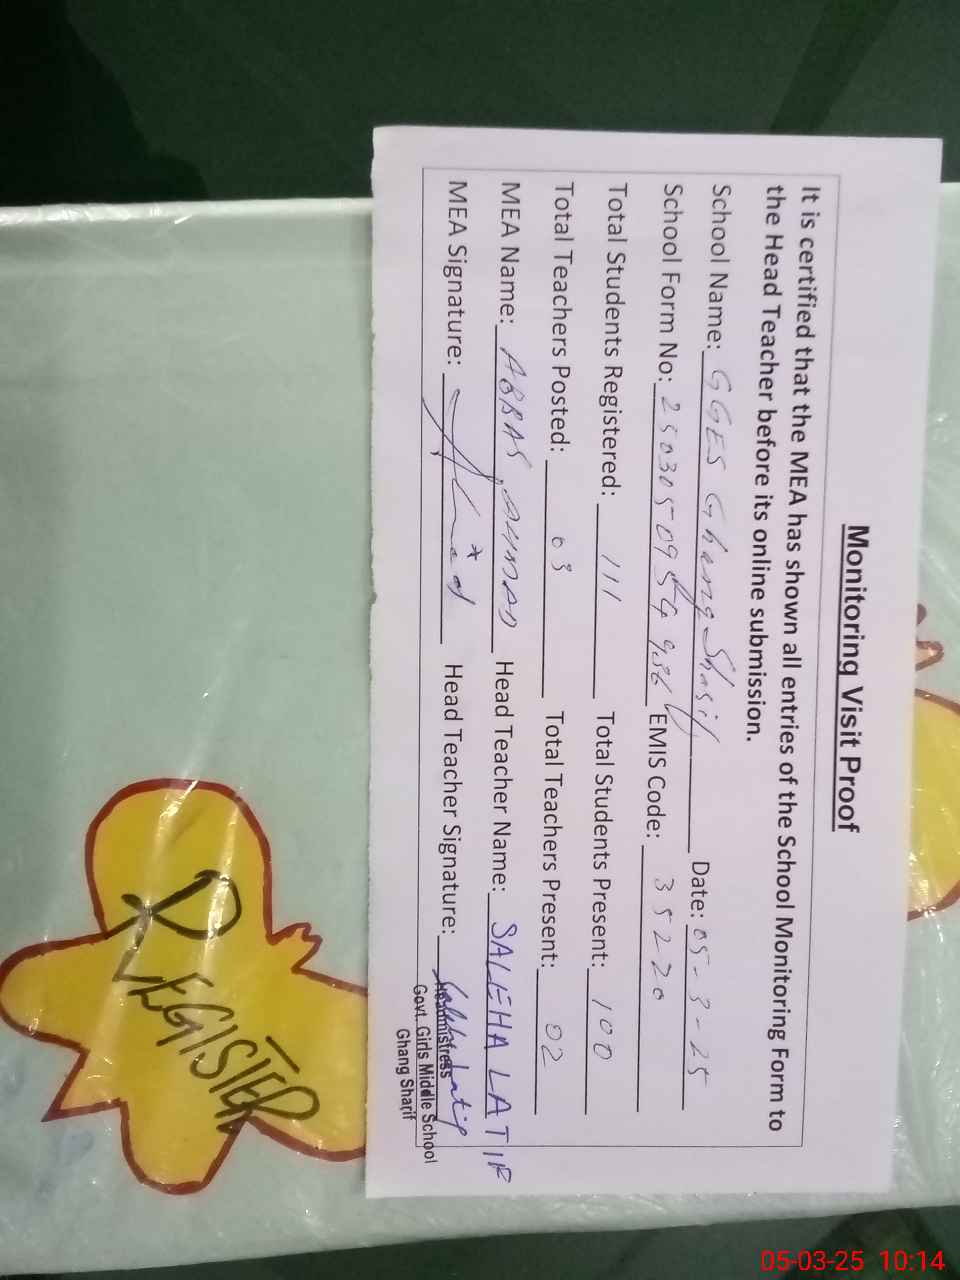 Monitoring Visit Proof
It is certified that the MEA has shown all entries of the School Monitoring Form to
the Head Teacher before its online submission.
School Name: GGES Ghang Sharif Date: 05-3-25
School Form No: EMIS Code: 35220
Total Students Registered: 111 Total Students Present: 100
Total Teachers Posted: 03 Total Teachers Present: 02
MEA Name: ABBAS AHMAD Head Teacher Name: SALEHA LATIF
MEA Signature: Head Teacher Signature: Saleha Latif
Headmistress
Govt. Girls Middle School
Ghang Sharif
REGISTER
05-03-25 10:14